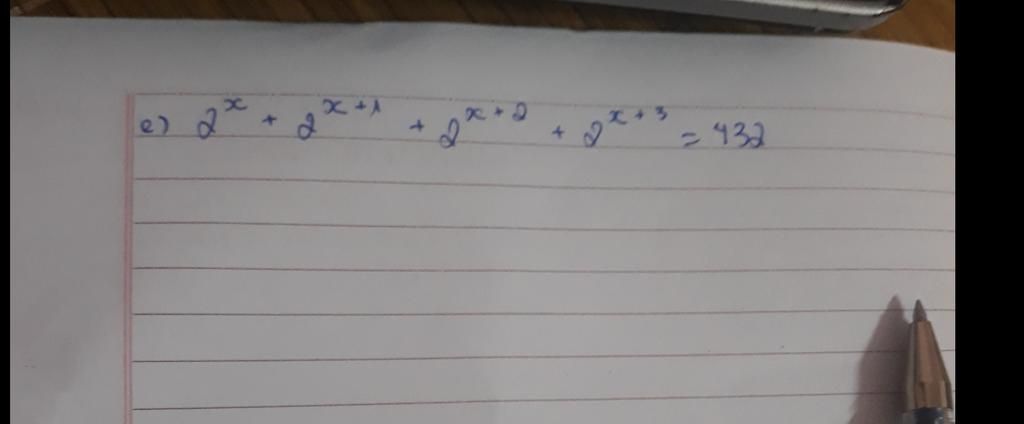 e) 2^x + 2^(x+1) + 2^(x+2) + 2^(x+3) = 432